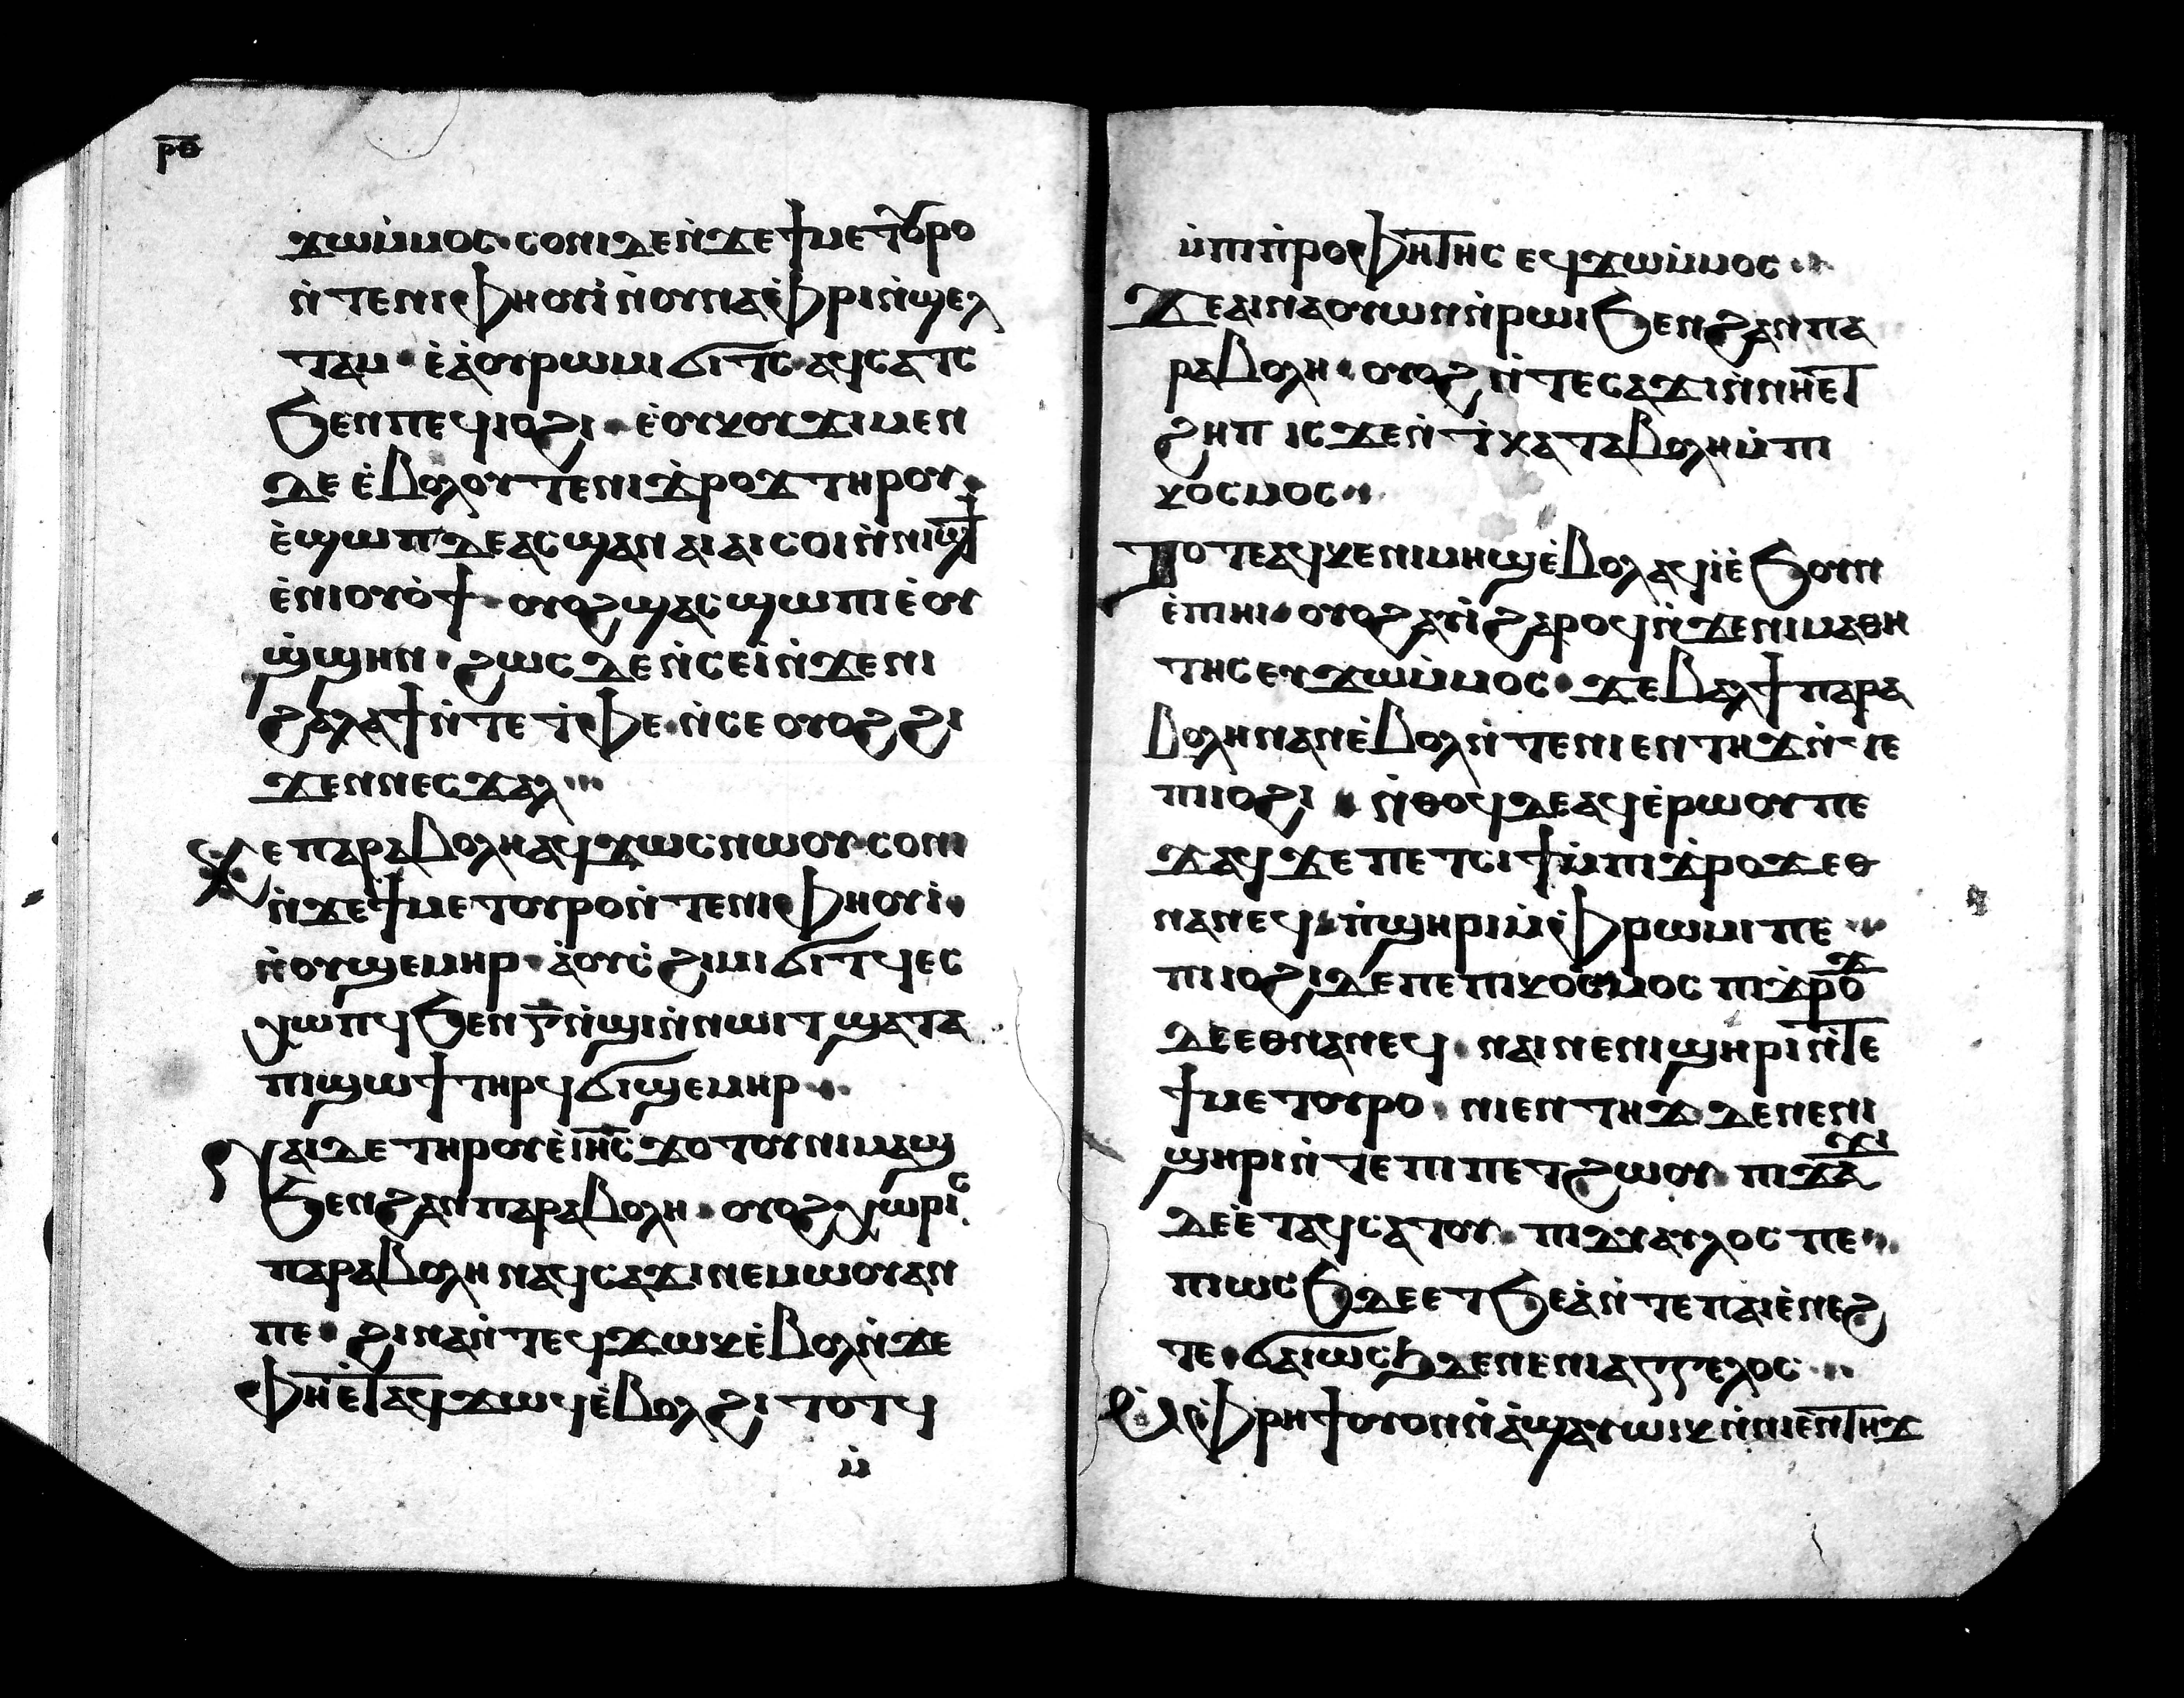 ⲣⲑ
ϫⲱⲙ̀ⲙⲟⲥ ⲥⲟⲛⲓ ⲇⲉⲛ̀ϫⲉϯⲙⲉⲧⲟⲩⲣⲟ
ⲛ̀ⲧⲉⲛⲓⲫⲏⲟⲩⲓ̀ ⲛ̀ⲟⲩⲛⲁⲫ̀ⲣⲓ ⲛ̀ϣⲉⲗ
ⲧⲁⲙ ⲉ̀ⲁ̀ⲟⲩⲣⲱⲙⲓ ϭⲓⲧⲥ ⲁϥⲥⲁⲧⲥ
ϧⲉⲛⲡⲉϥⲓⲟϩⲓ ⲉ̀ⲟⲩⲕⲟⲩϫⲓ ⲙⲉⲛ
ⲇⲉ ⲉ̀ⲃⲟⲗⲟⲩⲧⲉ ⲛⲓϫ̀ⲣⲟϫ ⲧⲏⲣⲟⲩ
ⲉ̀ϣⲱⲡ ⲇⲉ ⲁⲥϣⲁⲛⲁⲓⲁⲓ ⲥⲟⲓ ⲛ̀ⲛⲓϣϯ
ⲉ̀ⲛⲓⲟⲩⲟ̀ϯ ⲟⲩⲟϩ ϣⲁⲥϣⲱⲡⲓ ⲉ̀ⲟⲩ
ϣ̀ϣⲏⲛ ϩⲱⲥ ⲇⲉ ⲛ̀ⲥⲉⲓ̀ ⲛ̀ϫⲉⲛⲓ
ϩⲁⲗⲁϯ ⲛ̀ⲧⲉⲧ̀ⲫⲉ ⲛ̀ⲥⲉⲟⲩⲟϩ ϩⲓ
ϫⲉⲛⲛⲉⲥϫⲁⲗ
Ⲕⲉⲡⲁⲣⲁⲃⲟⲗⲏ ⲁϥϫⲱⲥ ⲛⲱⲟⲩ ⲥⲟⲛⲓ
ⲛ̀ϫⲉϯⲙⲉⲧⲟⲩⲣⲟ ⲛ̀ⲧⲉⲛⲓⲫⲏⲟⲩⲓ̀
ⲛ̀ⲟⲩϣⲉⲙⲏⲣ ⲁ̀ⲟⲩⲥ̀ϩⲓⲙⲓ ϭⲓⲧϥ ⲉⲥ
ⲭⲱⲡϥ ϧⲉⲛⲅ̅ ⲛ̀ϣⲓ ⲛ̀ⲛⲱⲓⲧ ϣⲁⲧⲁ
ⲡⲓϣⲱϯ ⲧⲏⲣϥ ϭⲓϣⲉⲙⲏⲣ
Ⲛⲁⲓ ⲇⲉ ⲧⲏⲣⲟⲩ ⲉ̀ⲓⲏⲥ ϫⲟⲧⲟⲩ ⲛⲓⲙⲁϣ
ϧⲉⲛϩⲁⲛⲡⲁⲣⲁⲃⲟⲗⲏ ⲟⲩⲟϩ ⲭⲱⲣⲓⲥ
ⲡⲁⲣⲁⲃⲟⲗⲏ ⲛⲁϥⲥⲁϫⲓ ⲛⲉⲙⲱⲟⲩ ⲁⲛ
ⲡⲉ ϩⲓⲛⲁ ⲛ̀ⲧⲉϥϫⲱⲕ ⲉ̀ⲃⲟⲗ ⲛ̀ϫⲉ
ⲫⲏⲉⲧⲁϥϫⲱϥ ⲉ̀ⲃⲟⲗϩⲓⲧⲟⲧϥ
ⲙ̀
ⲙ̀ⲡⲓⲡ̀ⲣⲟⲫⲏⲧⲏⲥ ⲉϥϫⲱⲙ̀ⲙⲟⲥ
Ϫⲉ ⲁⲓⲛⲁⲟⲩⲱⲛ ⲛ̀ⲣⲱⲓ ϧⲉⲛϩⲁⲛⲡⲁ
ⲣⲁⲃⲟⲗⲏ ⲟⲩⲟϩ ⲛ̀ⲧⲉⲥⲁϫⲓ ⲛ̀ⲛⲏⲉⲧ
ϩⲏⲡ ⲓⲥϫⲉⲛ ⲧ̀ⲕⲁⲧⲁⲃⲟⲗⲏ ⲙ̀ⲡⲓ
ⲕⲟⲥⲙⲟⲥ
Ⲧⲟⲧⲉ ⲁϥⲭⲉⲛⲓⲙⲏϣ ⲉ̀ⲃⲟⲗ ⲁϥⲓ̀ ⲉ̀ϧⲟⲩⲛ
ⲉ̀ⲡⲏⲓ ⲟⲩⲟϩ ⲁⲩⲓ̀ ϩⲁⲣⲟϥ ⲛ̀ϫⲉⲛⲓⲙⲁⲑⲏ
ⲧⲏⲥ ⲉⲩϫⲱⲙ̀ⲙⲟⲥ ϫⲉ ⲃⲉⲗ ϯⲡⲁⲣⲁ
ⲃⲟⲗⲏ ⲛⲁⲛ ⲉ̀ⲃⲟⲗ ⲛ̀ⲧⲉⲛⲓⲉⲛⲧⲏϫ ⲛ̀ⲧⲉ
ⲡⲓⲓⲟϩⲓ ⲛ̀ⲑⲟϥ ⲇⲉ ⲁϥⲉ̀ⲣⲱⲟⲩ ⲡⲉ
ϫⲁϥ ϫⲉ ⲡⲉⲧⲥⲓϯ ⲙ̀ⲡⲓϫ̀ⲣⲟϫ ⲉⲑ
ⲛⲁⲛⲉϥ ⲡ̀ϣⲏⲣⲓ ⲙ̀ⲫ̀ⲣⲱⲙⲓ ⲡⲉ
ⲡⲓⲓⲟϩⲓ ⲇⲉ ⲡⲉ ⲡⲓⲕⲟⲥⲙⲟⲥ ⲡⲓϫ̀ⲣⲟϫ
ⲇⲉ ⲉⲑⲛⲁⲛⲉϥ ⲛⲁⲓ ⲛⲉ ⲛⲓϣⲏⲣⲓ ⲛ̀ⲧⲉ
ϯⲙⲉⲧⲟⲩⲣⲟ ⲛⲓⲉⲛⲧⲏϫ ⲇⲉ ⲛⲉ ⲛⲓ
ϣⲏⲣⲓ ⲛ̀ⲧⲉⲡⲓⲡⲉⲧϩⲱⲟⲩ ⲡⲓϫⲁϫⲓ
ⲇⲉ ⲉ̀ⲧⲁϥⲥⲁⲧⲟⲩ ⲡⲓⲇⲓⲁⲩⲗⲟⲥ ⲡⲉ
ⲡⲓⲱⲥϧ ⲇⲉ ⲉⲧϧⲉⲁ̀ ⲛ̀ⲧⲉⲡⲁⲓⲉ̀ⲛⲉϩ
ⲧⲉ ϭⲁⲓⲱⲥϧ ⲇⲉ ⲛⲉ ⲛⲓⲁⲅⲅⲉⲗⲟⲥ
Ⲙⲫ̀ⲣⲏϯ ⲟⲩⲛ ⲛ̀ⲁ̀ϣⲁⲩⲱⲕ ⲛ̀ⲛⲓⲉⲛⲧⲏϫ